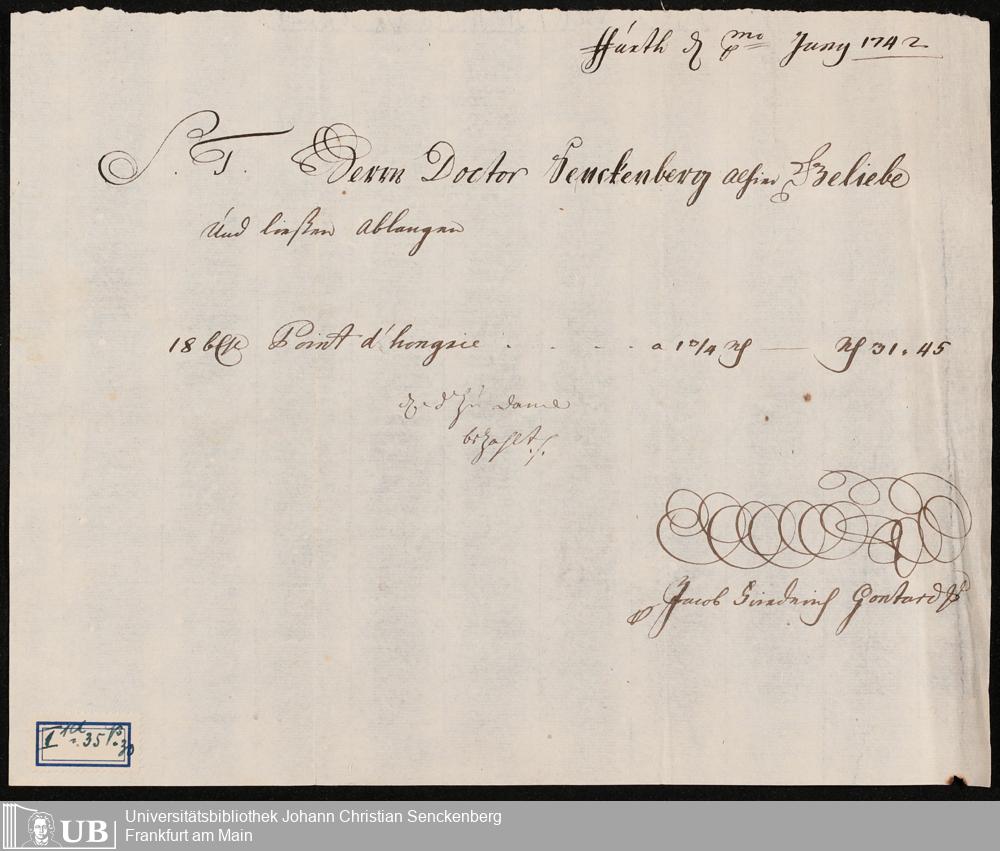 ffürth d pmo Juny 1742
S. T. Herrn Doctor Senckenberg alhier Beliebe
Und ließen ablangen
18 Point d'hongrie . . . . a 1¾ rth — rth 31. 45
zu danck
bezahlt
p Jacob Friedrich Gontard
1 35
Universitätsbibliothek Johann Christian Senckenberg
Frankfurt am Main
UB